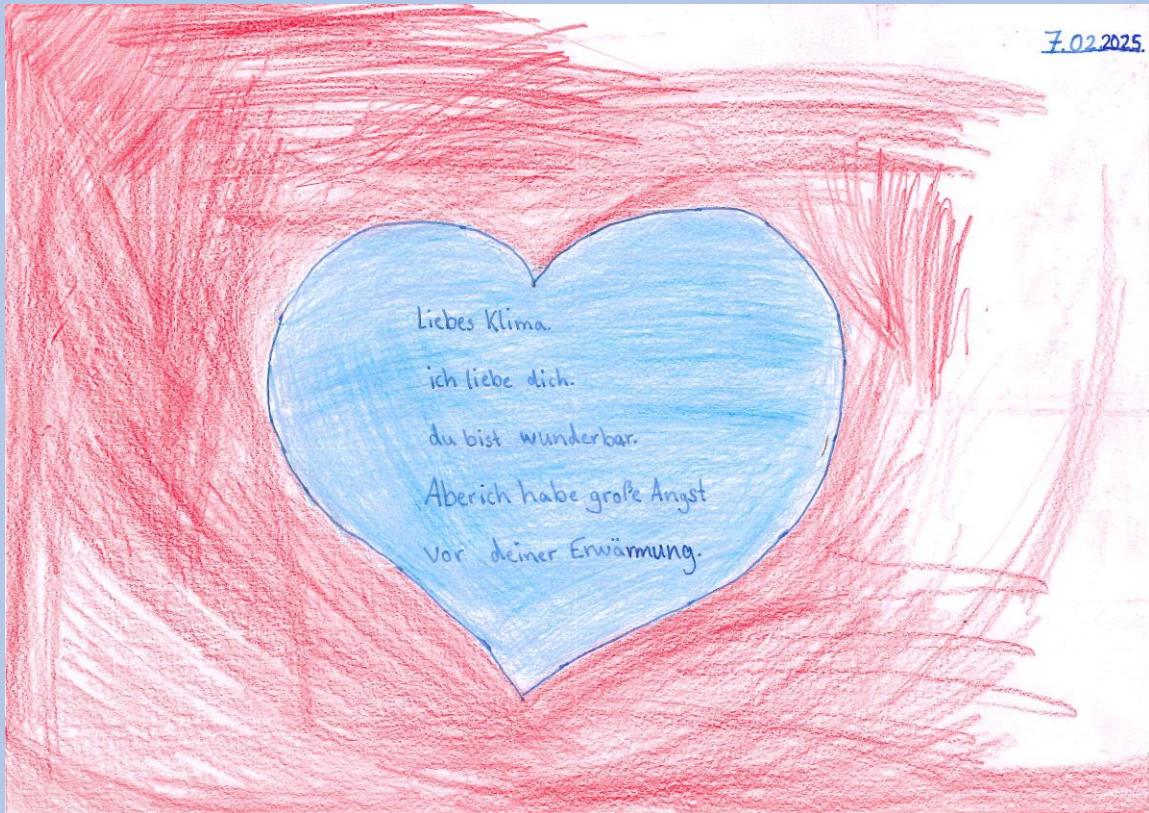 7.02.2025.
Liebes Klima.
ich liebe dich.
du bist wunderbar.
Aberich habe große Angst
vor deiner Erwärmung.